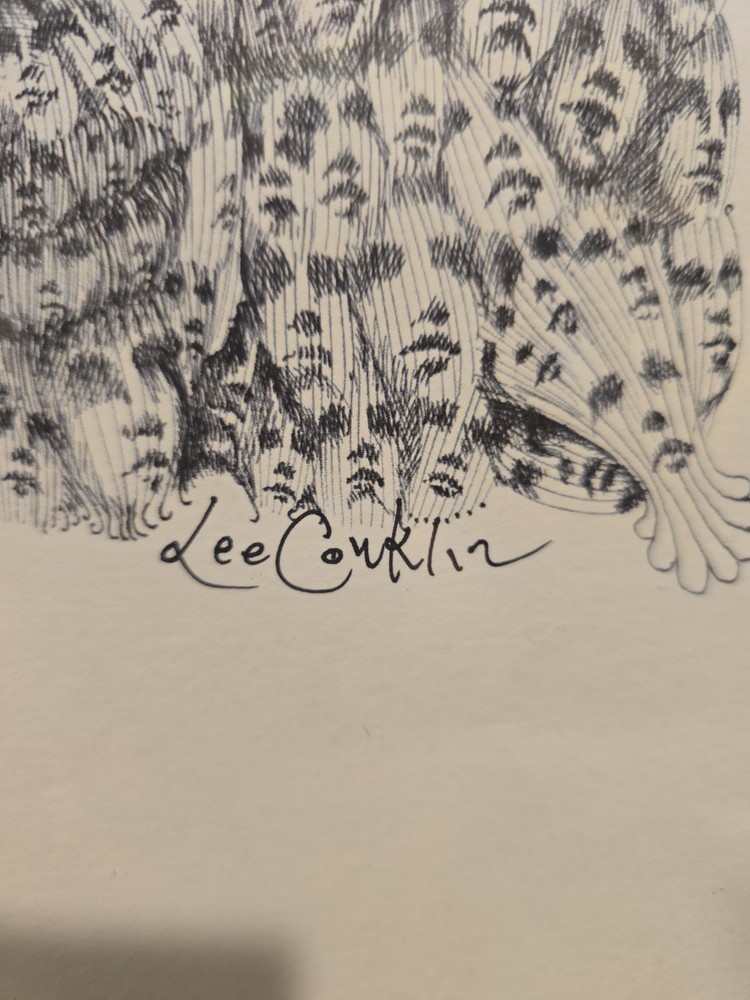 Lee Conklin